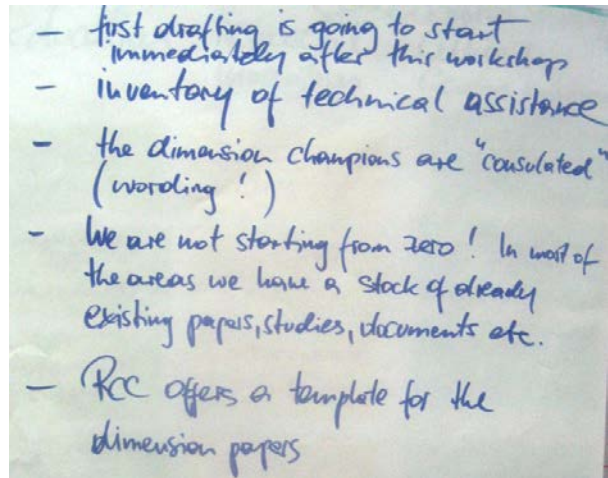 – first drafting is going to start
immediately after this workshop
– inventory of technical assistance
– the dimension champions are "consulated"
(wording!)
– We are not starting from zero! In most of
the areas we have a stock of already
existing papers, studies, documents etc.
– RCC offers a template for the
dimension papers